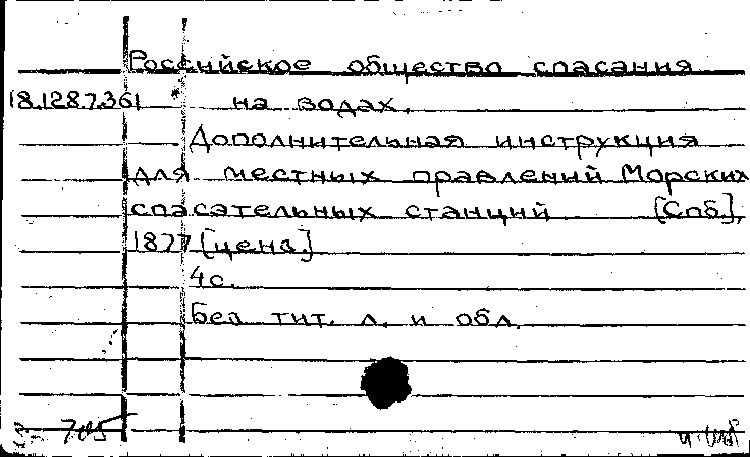 Российское общество спасания
18.128.7.361 на водах.
Дополнительная инструкция
для местных правлений Морских
спасательных станций [Спб.],
1877 [цена.]
4с.
Без тит. л. и обл.
705